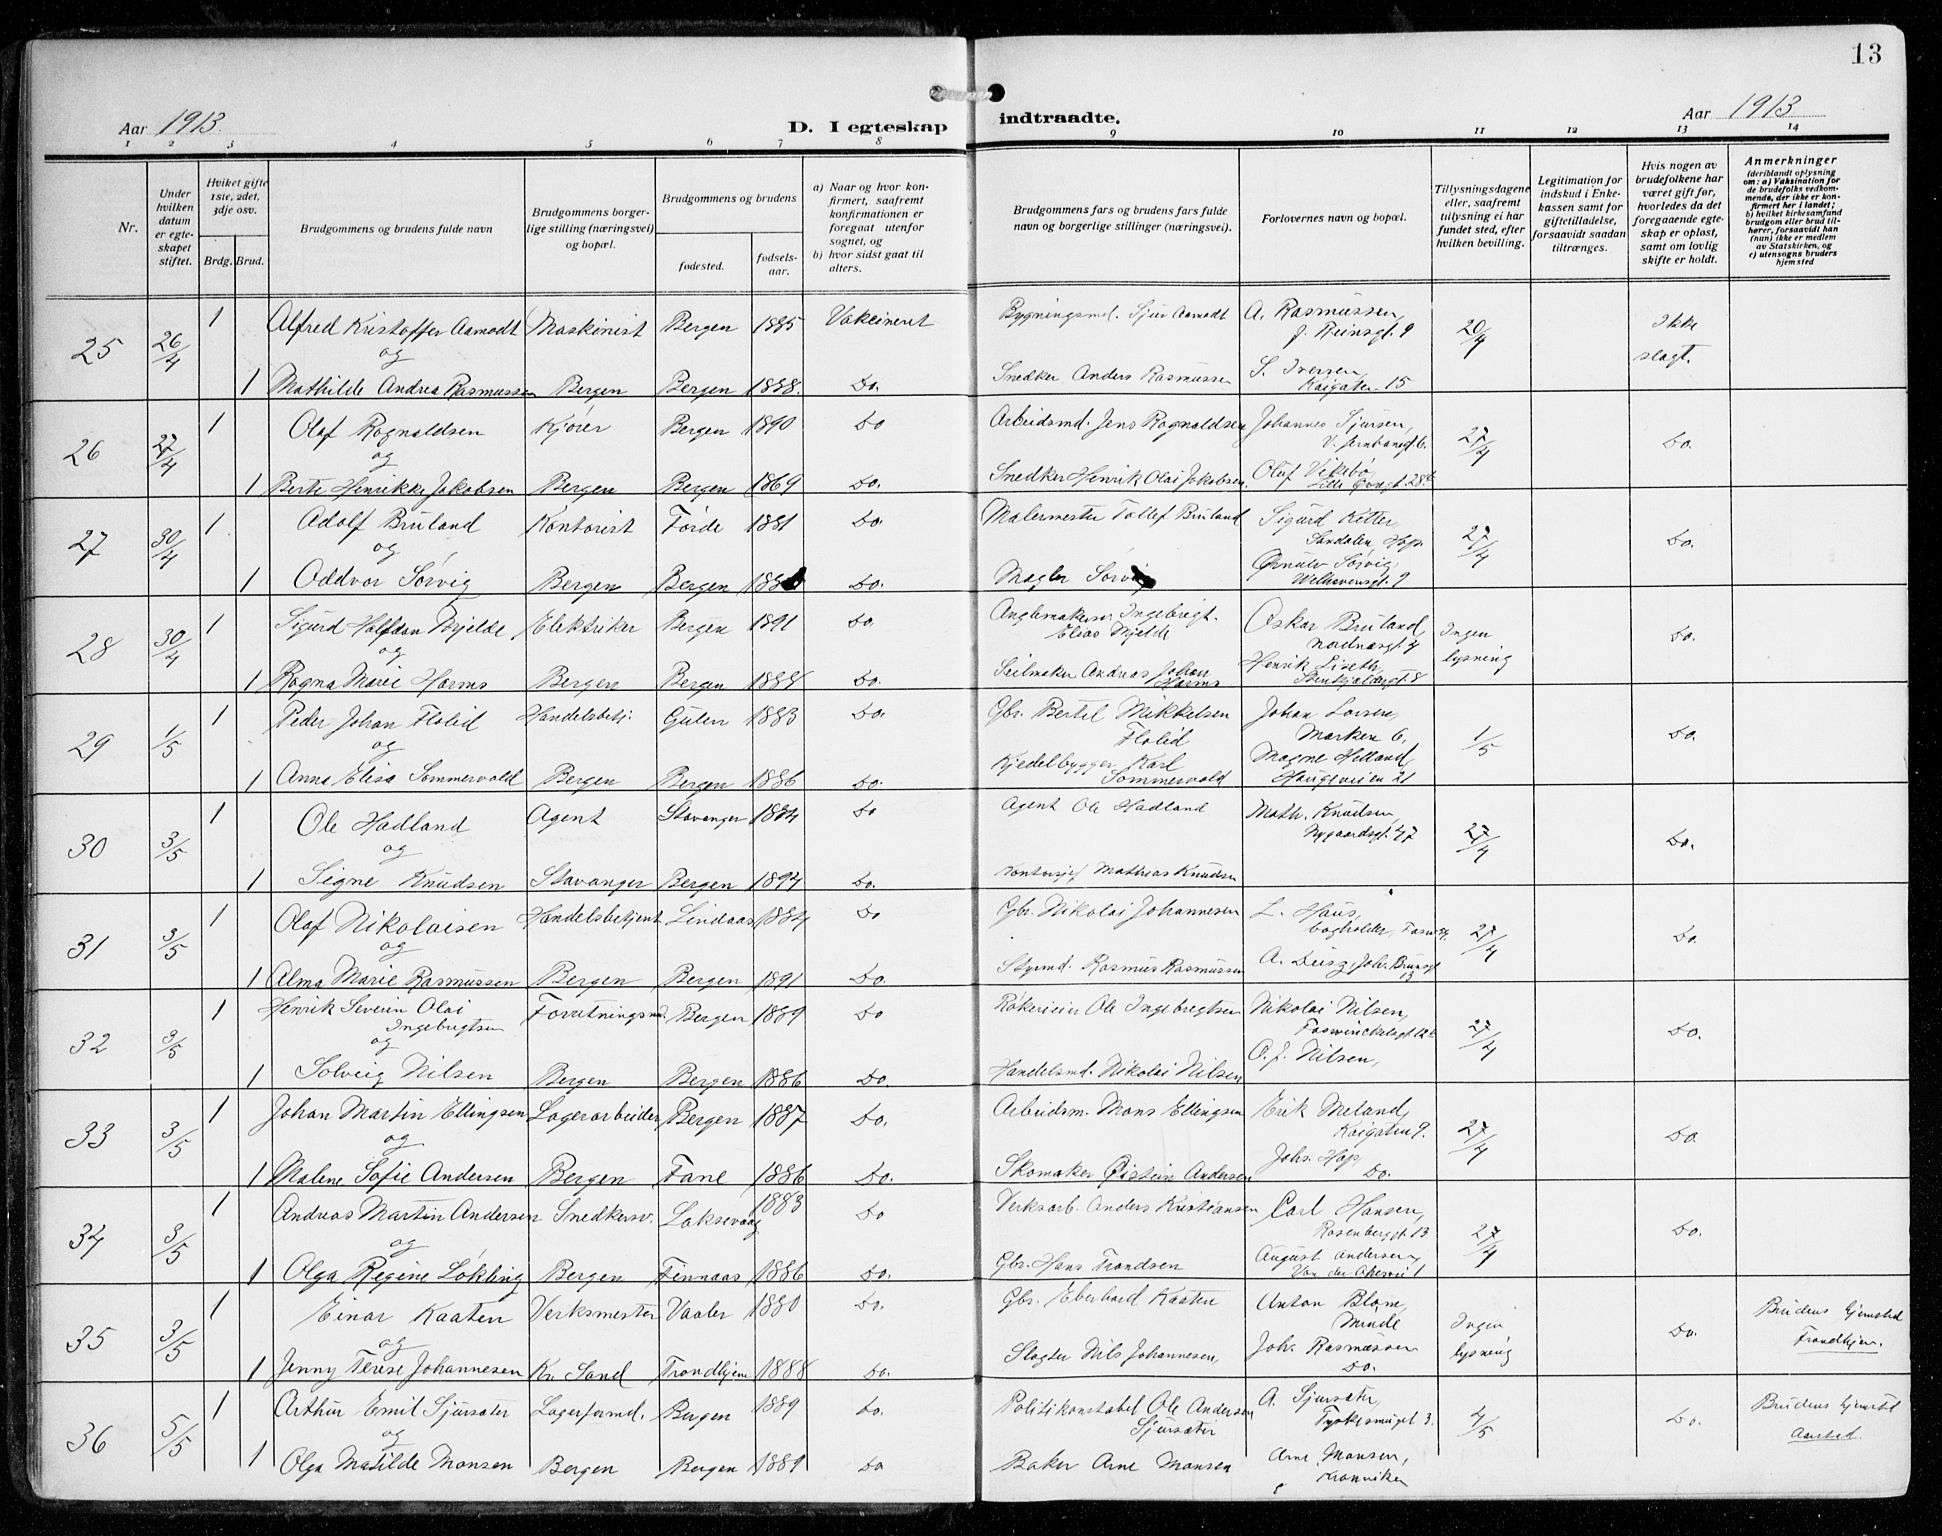 13
Aar 1913. D. I egteskap indtraadte. Aar 1913
1 2 3 4 5 6 7 8 9 10 11 12 13 14
Nr.
Under hvilken datum er egteskapet stiftet.
Hviket gifte 1ste, 2det, 3dje osv.
Brdg. Brud.
Brudgommens og brudens fulde navn
Brudgommens borgerlige stilling (næringsvei) og bopæl.
Brudgommens og brudens
fødested.
fødselsaar.
a) Naar og hvor konfirmert, saafremt konfirmationen er foregaat utenfor sognet, og
b) hvor sidst gaat til alters.
Brudgommens fars og brudens fars fulde navn og borgerlige stillinger (næringsvei).
Forlovernes navn og bopæl.
Tillysningsdagene eller, saafremt tillysning ei har fundet sted, efter hvilken bevilling.
Legitimation for indskud i Enkekassen samt for giftetilladelse, forsaavidt saadan tiltrænges.
Hvis nogen av brudefolkene har været gift før, hvorledes da det foregaaende egteskap er opløst, samt om lovlig skifte er holdt.
Anmerkninger (deriblandt oplysning om: a) Vaksination for de brudefolks vedkommende, der ikke er konfirmert her i landet; b) hvilket kirkesamfund brudgom eller brud tilhører, forsaavidt han (hun) ikke er medlem av Statskirken, og c) utensogns bruders hjemsted
25 26/4 1 Alfred Kristoffer Aamodt Maskinist Bergen 1885 Vakcineret Bygningsmd. Sjur Aamodt A. Rasmussen, 20/4 Ikke slagt.
og
1 Mathilde Andrea Rasmussen Bergen Bergen 1888. Do. Snedker Anders Rasmussen S. Iversen, Kaigaten 15
26 27/4 1 Olaf Ragnaldsen Kjører Bergen 1890 Do Arbeidsmd. Jens Ragnaldsen Johannes Sjursen, 27/4 Do.
og
1 Berte Henrikke Jakobsen Bergen Bergen 1869 Do. Snedker Henrik Olai Jakobsen. Oluf Vikebø,
27 30/4 1 Adolf Bruland Kontorist Førde 1881 Do Malermester Tollef Bruland Sigurd Ketter, Sandalen, Hop. 27/4 Do.
og
1 Oddvor Sørvig Bergen Bergen Do. Mægler Sørvig Ørnulv Sørvig, Welhavensgt. 9
28 30/4 1 Sigurd Halfdan Mjelde, Elektriker Bergen 1891 Do. Ingebrigt Elias Mjelde Oskar Bruland, Ingen lysning Do.
og
1 Ragna Marie Harms Bergen Bergen 1888 Do. Seilmaker Andreas Johan Harms Henrik Liseth,
29 1/5 1 Peder Johan Flolid Handelsbetj. Gulen 1883 Do. Gbr. Bertil Mikkelsen Flolid Johan Larsen, Marken 6. 1/5 Do
og
1 Anna Elisa Sommervold Bergen Bergen 1886 Do. Kjedelbygger Karl Sommervold Magne Helland, Haugeveien 21
30 3/5 1 Ole Hadland Agent Stavanger 1884 Do Agent Ole Hadland Math. Knudsen, Nygaardsgt. 47 27/4 Do.
og
1 Signe Knudsen Stavanger Bergen 1894 Do. Kontorsjef Mathias Knudsen
31 3/5 1 Olaf Nikolaisen Handelsbetjent Lindaas 1884 Do Gbr. Nikolai Johannesen L. Haus, bogholder, 27/4 Do.
og
1 Alma Marie Rasmussen Bergen Bergen 1891 Do. Styrmd. Rasmus Rasmussen Joh. Brunsgt 13
32 3/5 1 Henrik Severin Olai Ingebrigtsen Forretningsmd. Bergen 1889 Do Røkerieier Ole Ingebrigtsen Nikolai Nilsen, 27/4 Do.
og
1 Solveig Nilsen Bergen Bergen 1886 Do. Handelsmd. Nikolai Nilsen O. J. Nilsen,
33 3/5 1 Johan Martin Ellingsen Lagerarbeider Bergen 1887 Do. Arbeidsm. Mons Ellingsen Erik Meland, Kaigaten 9. 27/4 Do
og
1 Malene Sofie Andersen Bergen Fane 1886 Do. Skomaker Øistein Andersen Johs. Hop, Do.
34 3/5 1 Andreas Martin Andersen Snedkersv. Laksevaag 1883 Do Verksarb. Anders Kristiansen Carl Hansen, Rosenbergsgt. 13 27/4 Do.
og
1 Olga Regine Løkling Bergen Finnaas 1886 Do. Gbr. Hans Trondsen August Andersen,
35 3/5 1 Einar Kaaten Verksmester Vaaler 1880 Do. Gbr. Eberhard Kaaten Anton Blom, Minde Ingen lysning Do. Brudens hjemsted Trondhjem.
og
1 Jenny Terese Johannesen Kr. Sand Trondhjem 1888 Do. Slagter Nils Johannesen, Joh. Rasmussen Do.
36 5/5 1 Arthur Emil Sjursæter Lagerformd. Bergen 1889 Do. Politikonstabel Ole Andersen Sjursæter A. Sjursæter, Tyskesmuget 3. 4/5 Do. Brudens hjemsted Aarstad.
og
1 Olga Matilde Monsen Bergen Bergen 1889 Do Baker Arne Monsen Arne Monsen,